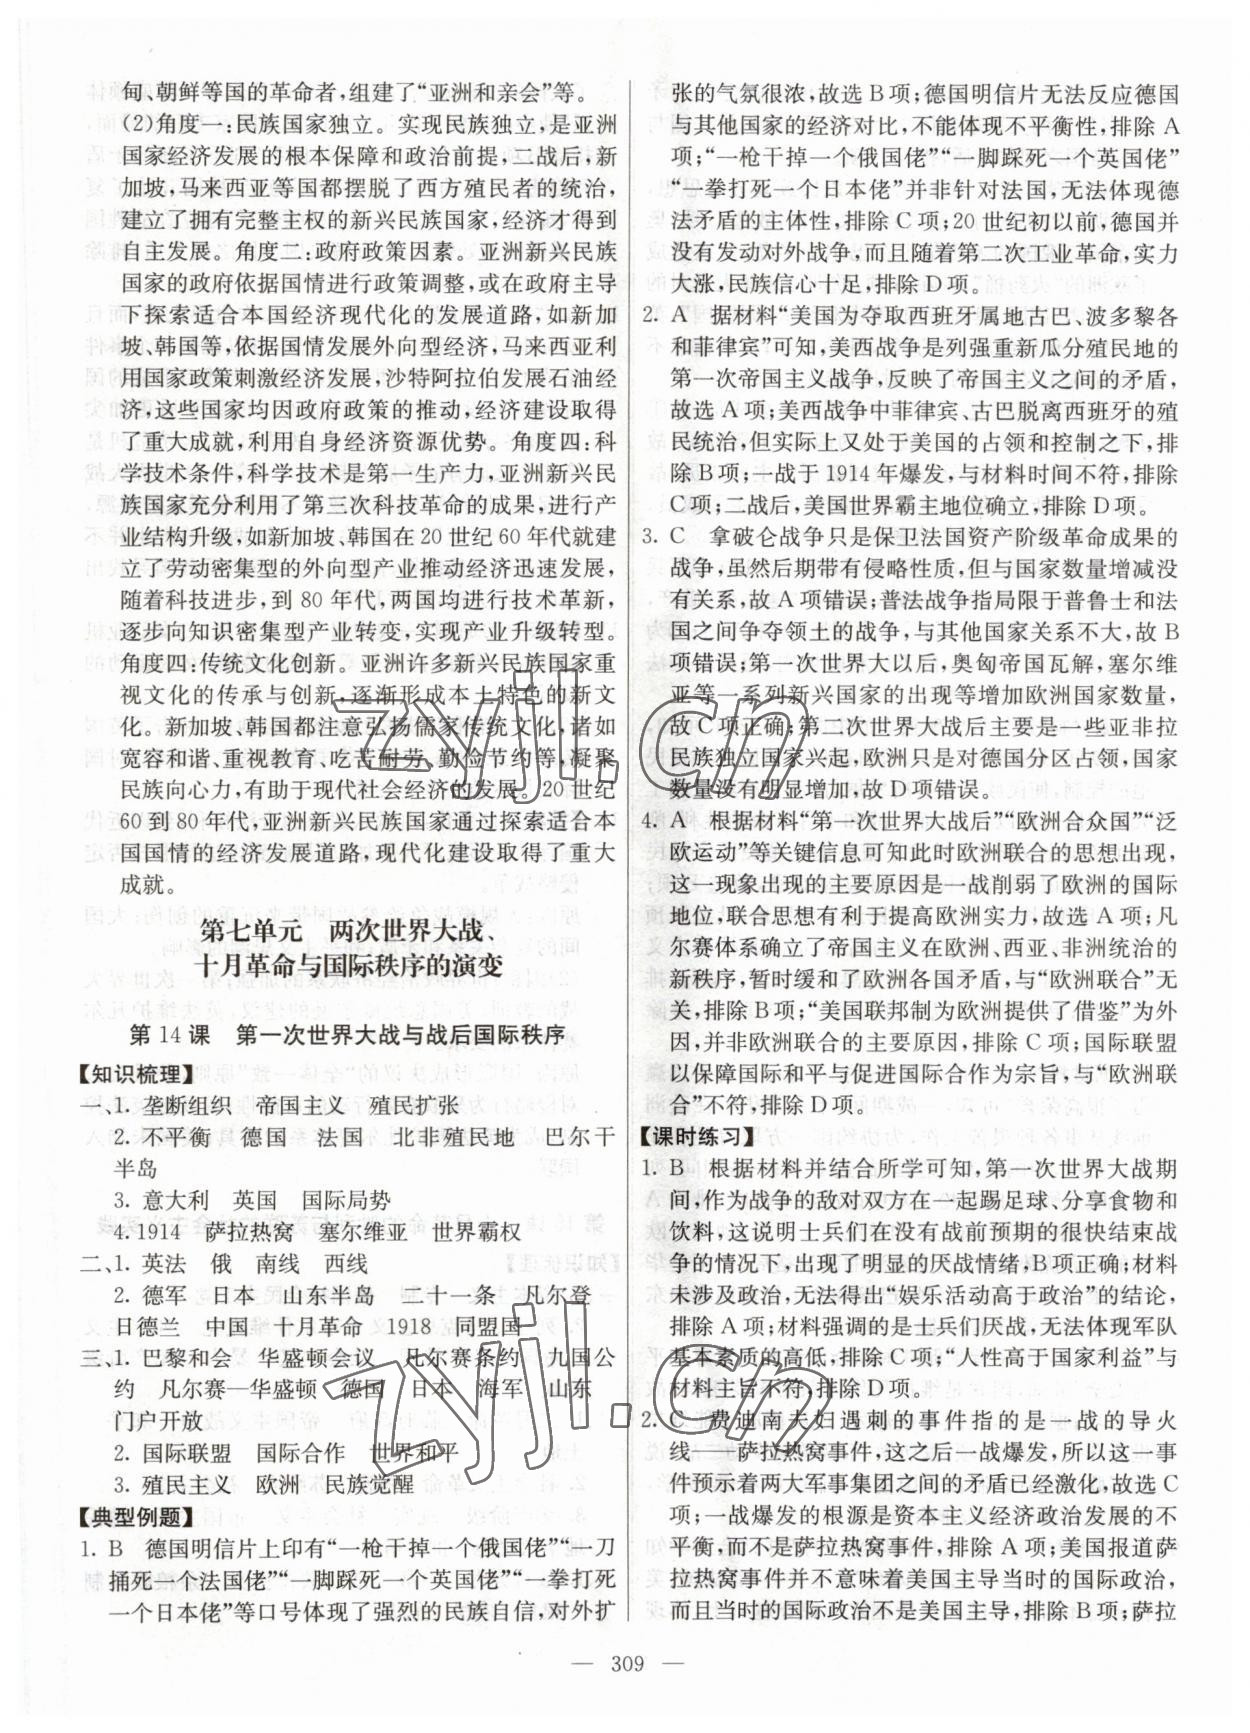 甸、朝鲜等国的革命者,组建了“亚洲和亲会”等。
(2)角度一:民族国家独立。实现民族独立,是亚洲
国家经济发展的根本保障和政治前提,二战后,新
加坡,马来西亚等国都摆脱了西方殖民者的统治,
建立了拥有完整主权的新兴民族国家,经济才得到
自主发展。角度二:政府政策因素。亚洲新兴民族
国家的政府依据国情进行政策调整,或在政府主导
下探索适合本国经济现代化的发展道路,如新加
坡、韩国等,依据国情发展外向型经济,马来西亚利
用国家政策刺激经济发展,沙特阿拉伯发展石油经
济,这些国家均因政府政策的推动,经济建设取得
了重大成就,利用自身经济资源优势。角度四:科
学技术条件,科学技术是第一生产力,亚洲新兴民
族国家充分利用了第三次科技革命的成果,进行产
业结构升级,如新加坡、韩国在20世纪60年代就建
立了劳动密集型的外向型产业推动经济迅速发展,
随着科技进步,到80年代,两国均进行技术革新,
逐步向知识密集型产业转变,实现产业升级转型。
角度四:传统文化创新。亚洲许多新兴民族国家重
视文化的传承与创新,逐渐形成本土特色的新文
化。新加坡、韩国都注意弘扬儒家传统文化,诸如
宽容和谐、重视教育、吃苦耐劳、勤俭节约等,凝聚
民族向心力,有助于现代社会经济的发展。20世纪
60到80年代,亚洲新兴民族国家通过探索适合本
国国情的经济发展道路,现代化建设取得了重大
成就。
第七单元 两次世界大战、
十月革命与国际秩序的演变
第14课 第一次世界大战与战后国际秩序
【知识梳理】
一、1. 垄断组织 帝国主义 殖民扩张
2. 不平衡 德国 法国 北非殖民地 巴尔干
半岛
3. 意大利 英国 国际局势
4. 1914 萨拉热窝 塞尔维亚 世界霸权
二、1. 英法 俄 南线 西线
2. 德军 日本 山东半岛 二十一条 凡尔登
日德兰 中国 十月革命 1918 同盟国
三、1. 巴黎和会 华盛顿会议 凡尔赛条约 九国公
约 凡尔赛—华盛顿 德国 日本 海军 山东
门户开放
2. 国际联盟 国际合作 世界和平
3. 殖民主义 欧洲 民族觉醒
【典型例题】
1. B 德国明信片上印有“一枪干掉一个俄国佬”“一刀
捅死一个法国佬”“一脚踩死一个英国佬”“一拳打死
一个日本佬”等口号体现了强烈的民族自信,对外扩
张的气氛很浓,故选B项;德国明信片无法反应德国
与其他国家的经济对比,不能体现不平衡性,排除A
项;“一枪干掉一个俄国佬”“一脚踩死一个英国佬”
“一拳打死一个日本佬”并非针对法国,无法体现德
法矛盾的主体性,排除C项;20世纪初以前,德国并
没有发动对外战争,而且随着第二次工业革命,实力
大涨,民族信心十足,排除D项。
2. A 据材料“美国为夺取西班牙属地古巴、波多黎各
和菲律宾”可知,美西战争是列强重新瓜分殖民地的
第一次帝国主义战争,反映了帝国主义之间的矛盾,
故选A项;美西战争中菲律宾、古巴脱离西班牙的殖
民统治,但实际上又处于美国的占领和控制之下,排
除B项;一战于1914年爆发,与材料时间不符,排除
C项;二战后,美国世界霸主地位确立,排除D项。
3. C 拿破仑战争只是保卫法国资产阶级革命成果的
战争,虽然后期带有侵略性质,但与国家数量增减没
有关系,故A项错误;普法战争指局限于普鲁士和法
国之间争夺领土的战争,与其他国家关系不大,故B
项错误;第一次世界大以后,奥匈帝国瓦解,塞尔维
亚等一系列新兴国家的出现等增加欧洲国家数量,
故C项正确;第二次世界大战后主要是一些亚非拉
民族独立国家兴起,欧洲只是对德国分区占领,国家
数量没有明显增加,故D项错误。
4. A 根据材料“第一次世界大战后”“欧洲合众国”“泛
欧运动”等关键信息可知此时欧洲联合的思想出现,
这一现象出现的主要原因是一战削弱了欧洲的国际
地位,联合思想有利于提高欧洲实力,故选A项;凡
尔赛体系确立了帝国主义在欧洲、西亚、非洲统治的
新秩序,暂时缓和了欧洲各国矛盾,与“欧洲联合”无
关,排除B项;“美国联邦制为欧洲提供了借鉴”为外
因,并非欧洲联合的主要原因,排除C项;国际联盟
以保障国际和平与促进国际合作为宗旨,与“欧洲联
合”不符,排除D项。
【课时练习】
1. B 根据材料并结合所学可知,第一次世界大战期
间,作为战争的敌对双方在一起踢足球、分享食物和
饮料,这说明士兵们在没有战前预期的很快结束战
争的情况下,出现了明显的厌战情绪,B项正确;材料
未涉及政治,无法得出“娱乐活动高于政治”的结论,
排除A项;材料强调的是士兵们厌战,无法体现军队
基本素质的高低,排除C项;“人性高于国家利益”与
材料主旨不符,排除D项。
2. C 费迪南夫妇遇刺的事件指的是一战的导火
线——萨拉热窝事件,这之后一战爆发,所以这一事
件预示着两大军事集团之间的矛盾已经激化,故选C
项;一战爆发的根源是资本主义经济政治发展的不
平衡,而不是萨拉热窝事件,排除A项;美国报道萨
拉热窝事件并不意味着美国主导当时的国际政治,
而且当时的国际政治不是美国主导,排除B项;萨拉
— 309 —
zyjl.cn
zyjl.cn